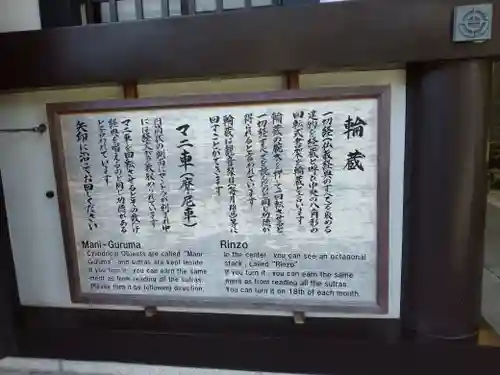 輪蔵
一切経(仏教経典のすべてを収める
建物を経蔵と呼び中央の八角形の
回転式書架を輪蔵と言います。
輪蔵の腕木を押して回転させると
一切経すべてを読んだのと同じ功徳が
得られると言われています。
輪蔵は観音縁日(毎月18日)に
回すことができます。
マニ車(摩尼車)
円筒状の側面にマントラが刻まれ中
には経文などが収められています。
マニ車を回転させるとその数だけ
経典を唱えるのと同じ功徳がある
と言われています。
矢印に沿ってお回しください
Mani-Guruma
Cylindrical Objests are called "Mani-
Guruma" and sutras are kept inside.
If you turn it, you can earn the same
merit as from reading all the sutras.
Please turn it by following direction.
Rinzo
In the center, you can see an octagonal
stack, called "Rinzo".
If you turn it, you can earn the same
merit as from reading all the sutras.
You can turn it on 18th of each month.